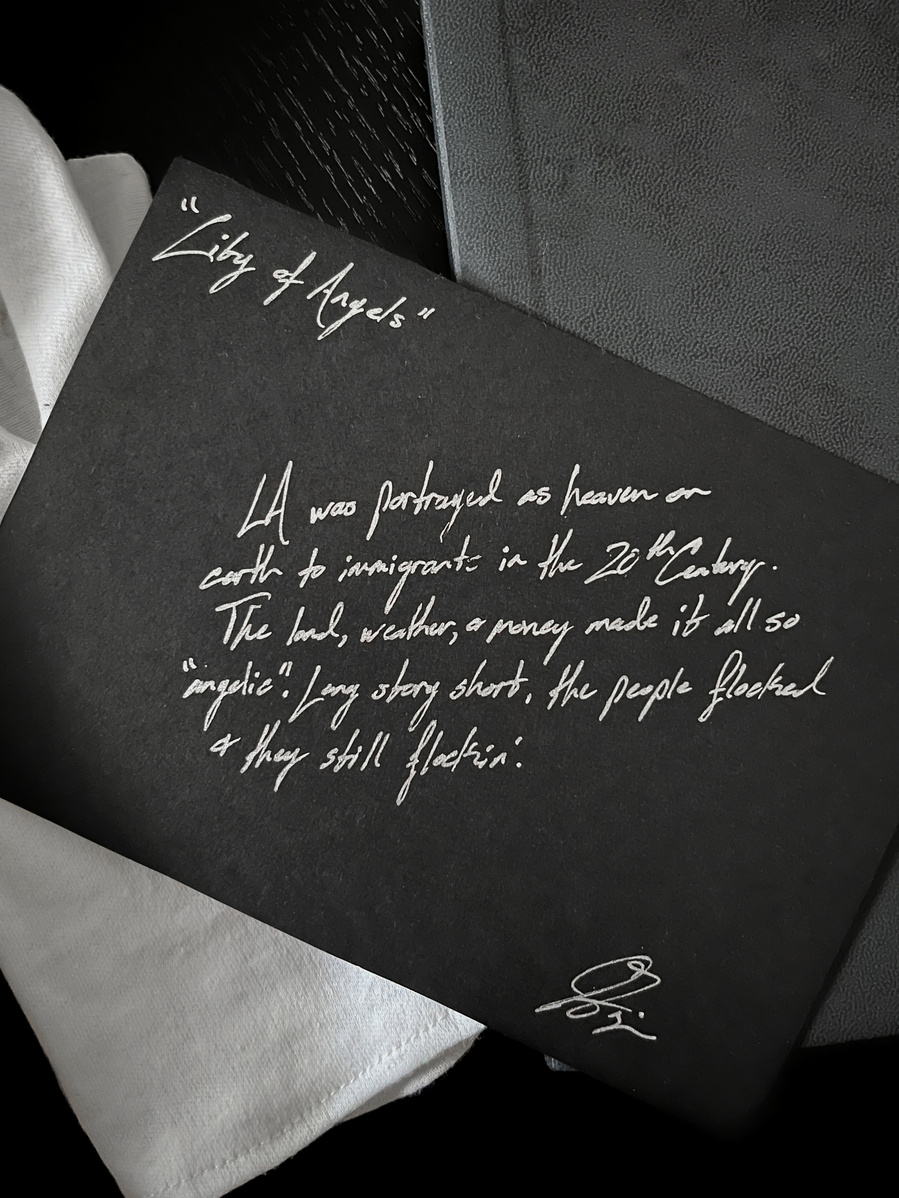 "City of Angels"
LA was portrayed as heaven on
earth to immigrants in the 20th Century.
The land, weather, & money made it all so
"angelic". Long story short, the people flocked
& they still flockin'.